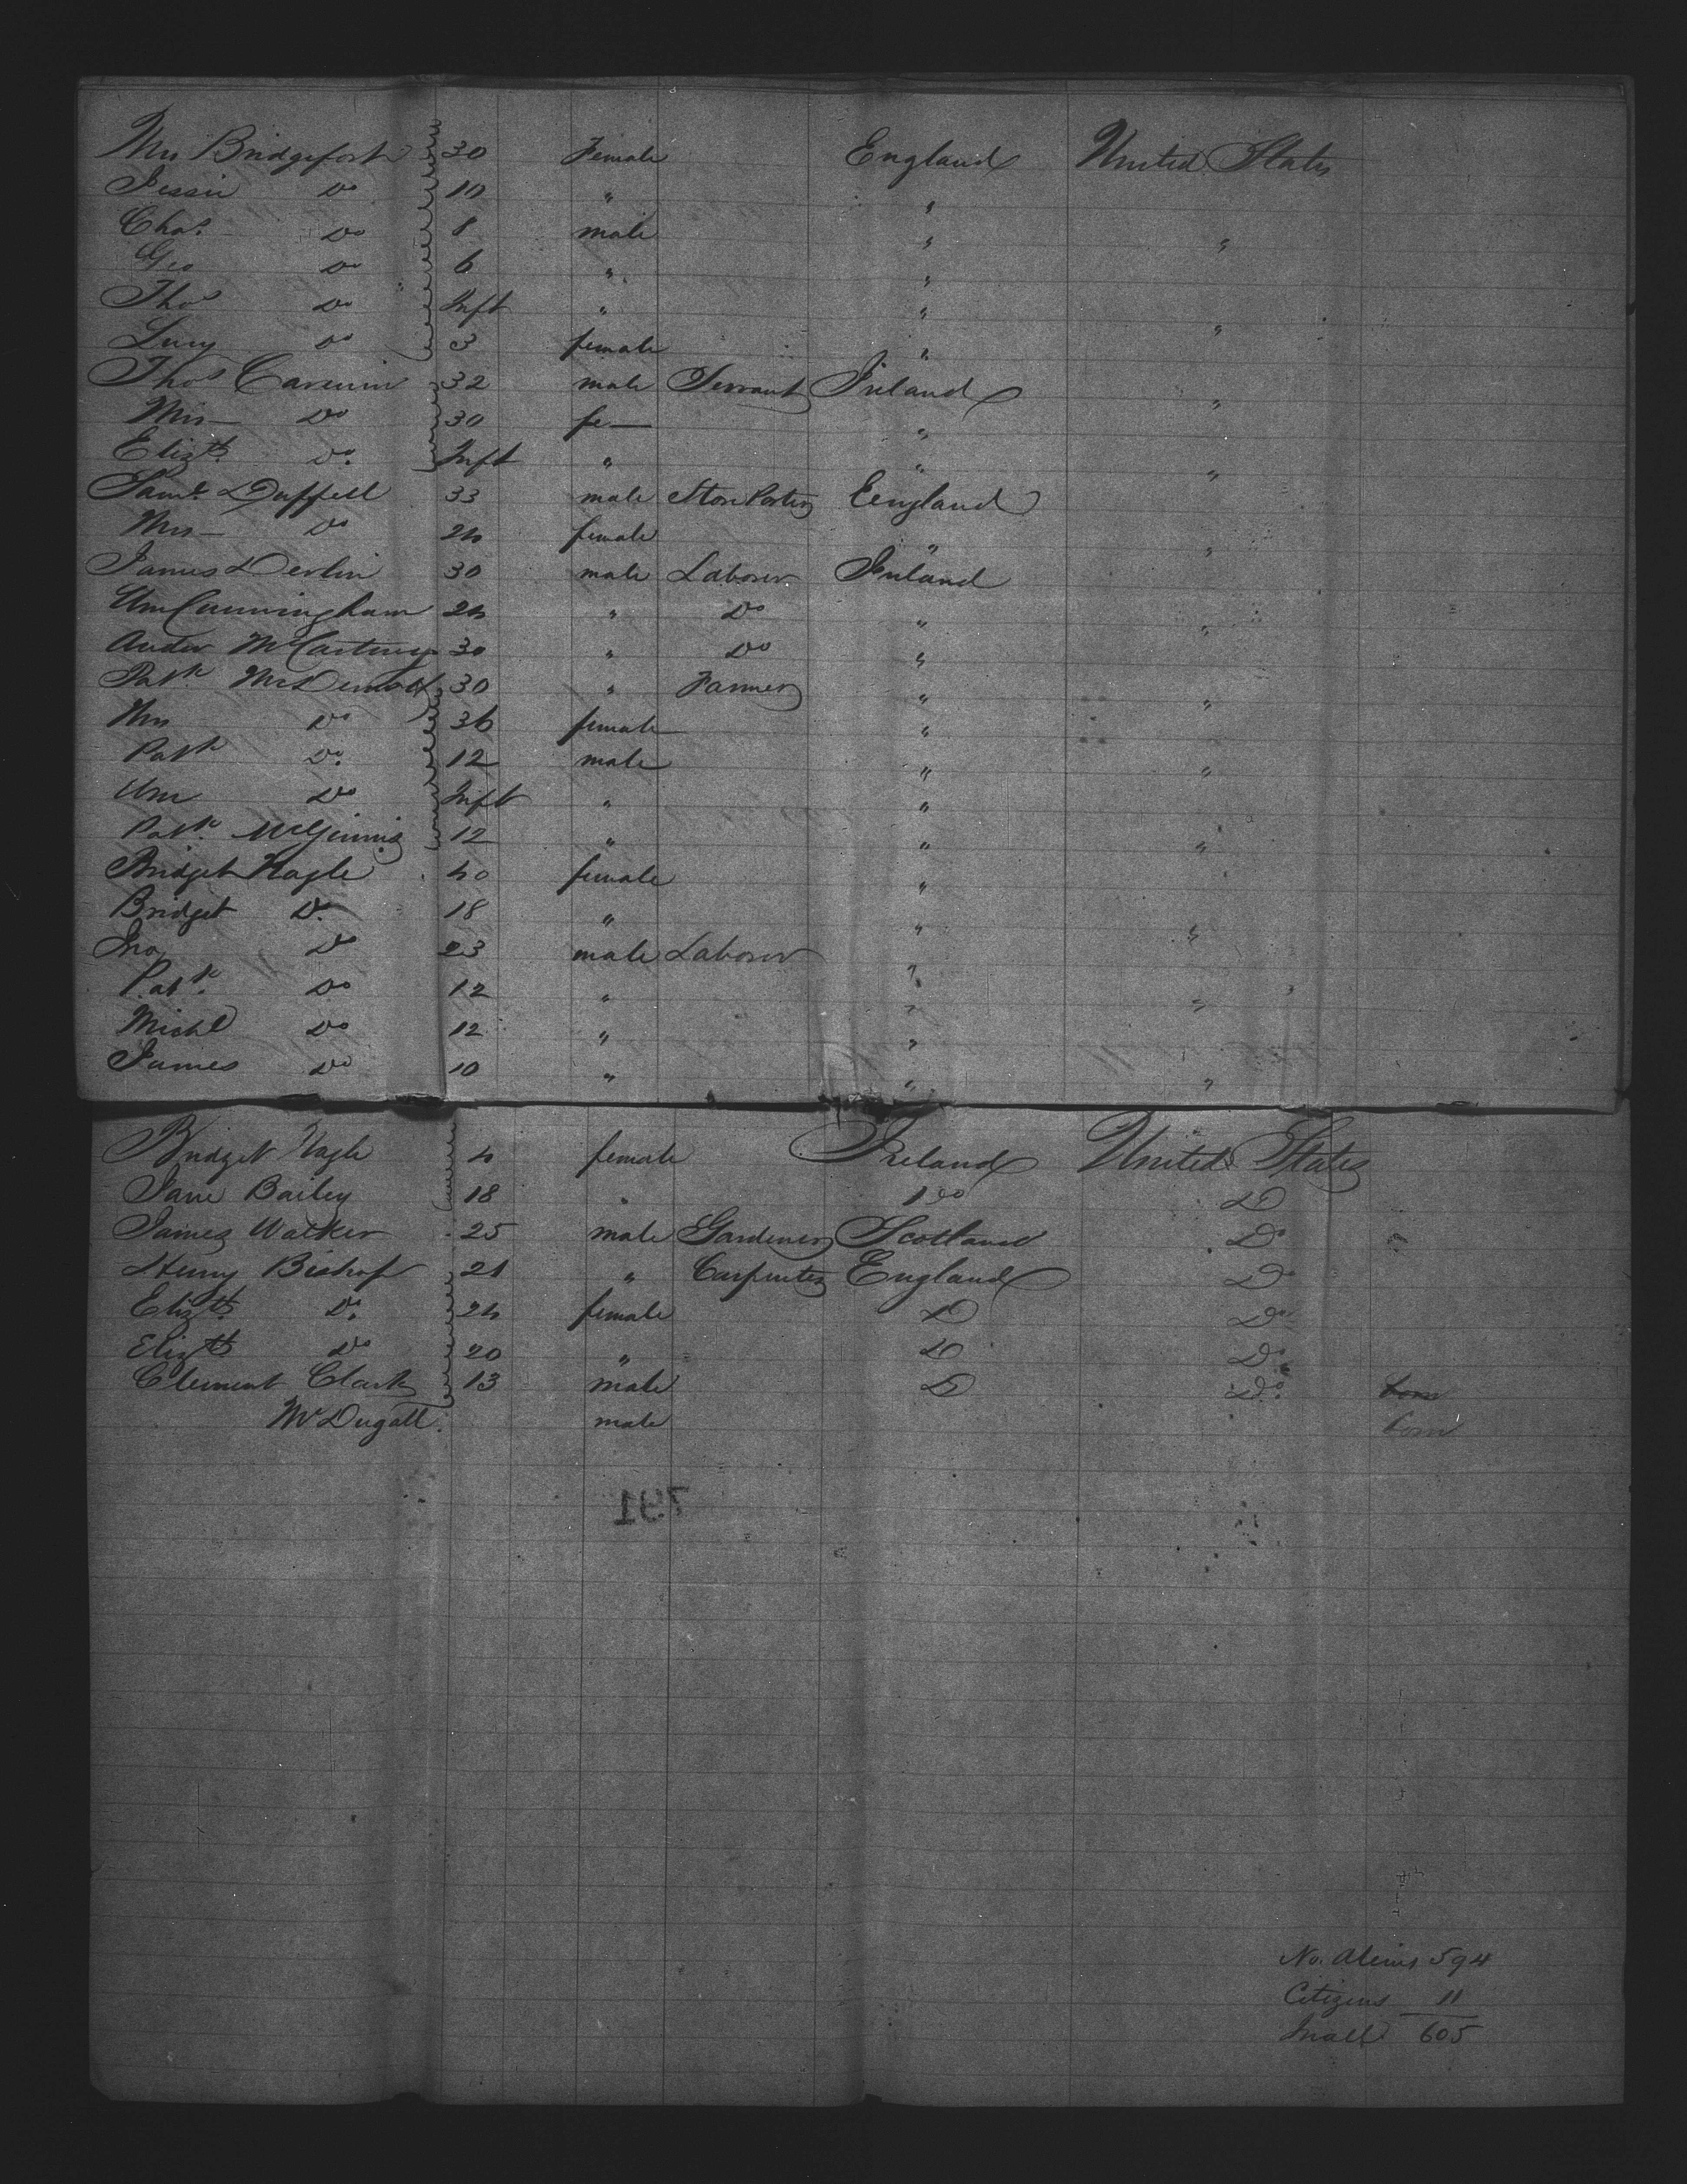 Mrs Bridgefort 30 Female England United States
Jessie Do 10 " "
Chas. Do 8 male " "
Geo Do 6 " "
Thos Do Inft " " "
Lucy Do 3 female "
Thos 32 male Servant Ireland "
Mrs — Do 30 fe — "
Elizth. Do. Inft " " "
Saml. Duffell 33 male Store Porter England
Mrs — Do 24 female " "
James Devlin 30 male Laborer Ireland
Wm Cunningham 24 " Do " "
McCartney 30 " Do "
Patk. McDermott 30 " Farmer " "
Mrs Do 36 female "
Patk Do. 12 male " "
Wm Do Inft " "
Patk. McGinnis 12 " " "
Bridget Nagle 40 female "
Bridget Do. 18 " " "
Jno Do 23 male Laborer "
Patk. Do 12 " " "
Michl Do 12 " "
James Do 10 " " "
Bridget Nagle 4 female Ireland United States
Jane Bailey 18 " Do Do
James Walker 25 male Gardener Scotland Do
Henry Bishop 21 " Carpenter England Do
Elizth. Do. 24 female Do Do
Elizth Do 20 " Do Do
Clement Clark 13 male Do Do. born
McDugall. male born
791
No. Aliens 594
Citizens 11
In all 605